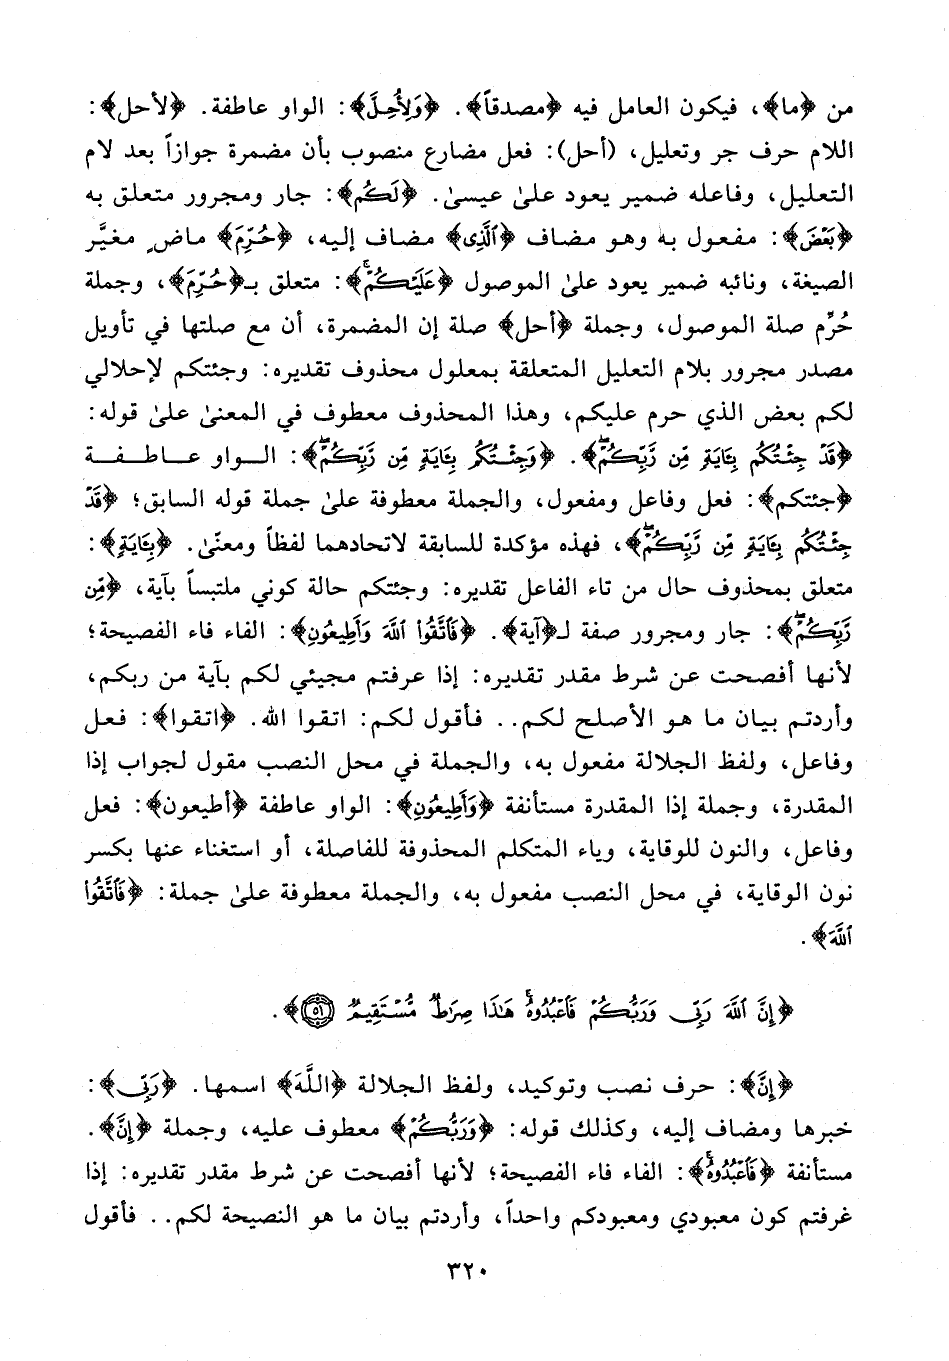 من ﴿ما﴾، فيكون العامل فيه ﴿مصدقاً﴾. ﴿وَلِأُحِلَّ﴾: الواو عاطفة. ﴿لأحل﴾:
اللام حرف جر وتعليل، (أحل): فعل مضارع منصوب بأن مضمرة جوازاً بعد لام
التعليل، وفاعله ضمير يعود علىٰ عيسىٰ. ﴿لَكُم﴾: جار ومجرور متعلق به
﴿بَعْضَ﴾: مفعول به وهو مضاف ﴿ٱلَّذِى﴾ مضاف إليه، ﴿حُرِّمَ﴾ ماضٍ مغيَّر
الصيغة، ونائبه ضمير يعود علىٰ الموصول ﴿عَلَيْكُمْۚ﴾: متعلق بـ﴿حُرِّمَ﴾، وجملة
حُرِّم صلة الموصول، وجملة ﴿أحل﴾ صلة إن المضمرة، أن مع صلتها في تأويل
مصدر مجرور بلام التعليل المتعلقة بمعلول محذوف تقديره: وجئتكم لإحلالي
لكم بعض الذي حرم عليكم، وهذا المحذوف معطوف في المعنىٰ علىٰ قوله:
﴿قَدْ جِئْتُكُم بِـَٔايَةٍ مِّن رَّبِّكُمْۖ﴾. ﴿وَجِئْتُكُم بِـَٔايَةٍ مِّن رَّبِّكُمْۖ﴾: الـواو عـاطـفـة
﴿جئتكم﴾: فعل وفاعل ومفعول، والجملة معطوفة علىٰ جملة قوله السابق؛ ﴿قَدْ
جِئْتُكُم بِـَٔايَةٍ مِّن رَّبِّكُمْۖ﴾، فهذه مؤكدة للسابقة لاتحادهما لفظاً ومعنًى. ﴿بِـَٔايَةٍ﴾:
متعلق بمحذوف حال من تاء الفاعل تقديره: وجئتكم حالة كوني ملتبساً بآية، ﴿مِّن
رَّبِّكُمْۖ﴾: جار ومجرور صفة لـ﴿آية﴾. ﴿فَٱتَّقُوا۟ ٱللَّهَ وَأَطِيعُونِ﴾: الفاء فاء الفصيحة؛
لأنها أفصحت عن شرط مقدر تقديره: إذا عرفتم مجيئي لكم بآية من ربكم،
وأردتم بيان ما هو الأصلح لكم.. فأقول لكم: اتقوا الله. ﴿اتقوا﴾: فعل
وفاعل، ولفظ الجلالة مفعول به، والجملة في محل النصب مقول لجواب إذا
المقدرة، وجملة إذا المقدرة مستأنفة ﴿وَأَطِيعُونِ﴾: الواو عاطفة ﴿أطيعون﴾: فعل
وفاعل، والنون للوقاية، وياء المتكلم المحذوفة للفاصلة، أو استغناء عنها بكسر
نون الوقاية، في محل النصب مفعول به، والجملة معطوفة علىٰ جملة: ﴿فَٱتَّقُوا۟
ٱللَّهَ﴾.
﴿إِنَّ ٱللَّهَ رَبِّى وَرَبُّكُمْ فَٱعْبُدُوهُۚ هَٰذَا صِرَٰطٌ مُّسْتَقِيمٌ ٥١﴾.
﴿إِنَّ﴾: حرف نصب وتوكيد، ولفظ الجلالة ﴿اللَّهَ﴾ اسمها. ﴿رَبِّى﴾:
خبرها ومضاف إليه، وكذلك قوله: ﴿وَرَبُّكُمْ﴾ معطوف عليه، وجملة ﴿إِنَّ﴾.
مستأنفة ﴿فَٱعْبُدُوهُۚ﴾: الفاء فاء الفصيحة؛ لأنها أفصحت عن شرط مقدر تقديره: إذا
غرفتم كون معبودي ومعبودكم واحداً، وأردتم بيان ما هو النصيحة لكم.. فأقول
٣٢٠